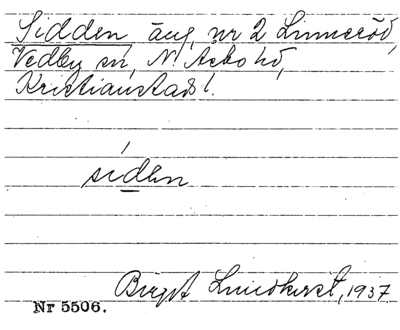 Sidden, äng, nr 2 Linneröd,
Vedby sn, N. Åsbo hd,
Kristianstads l.
síden
Birgit Lundkvist, 1937
Nr 5506.